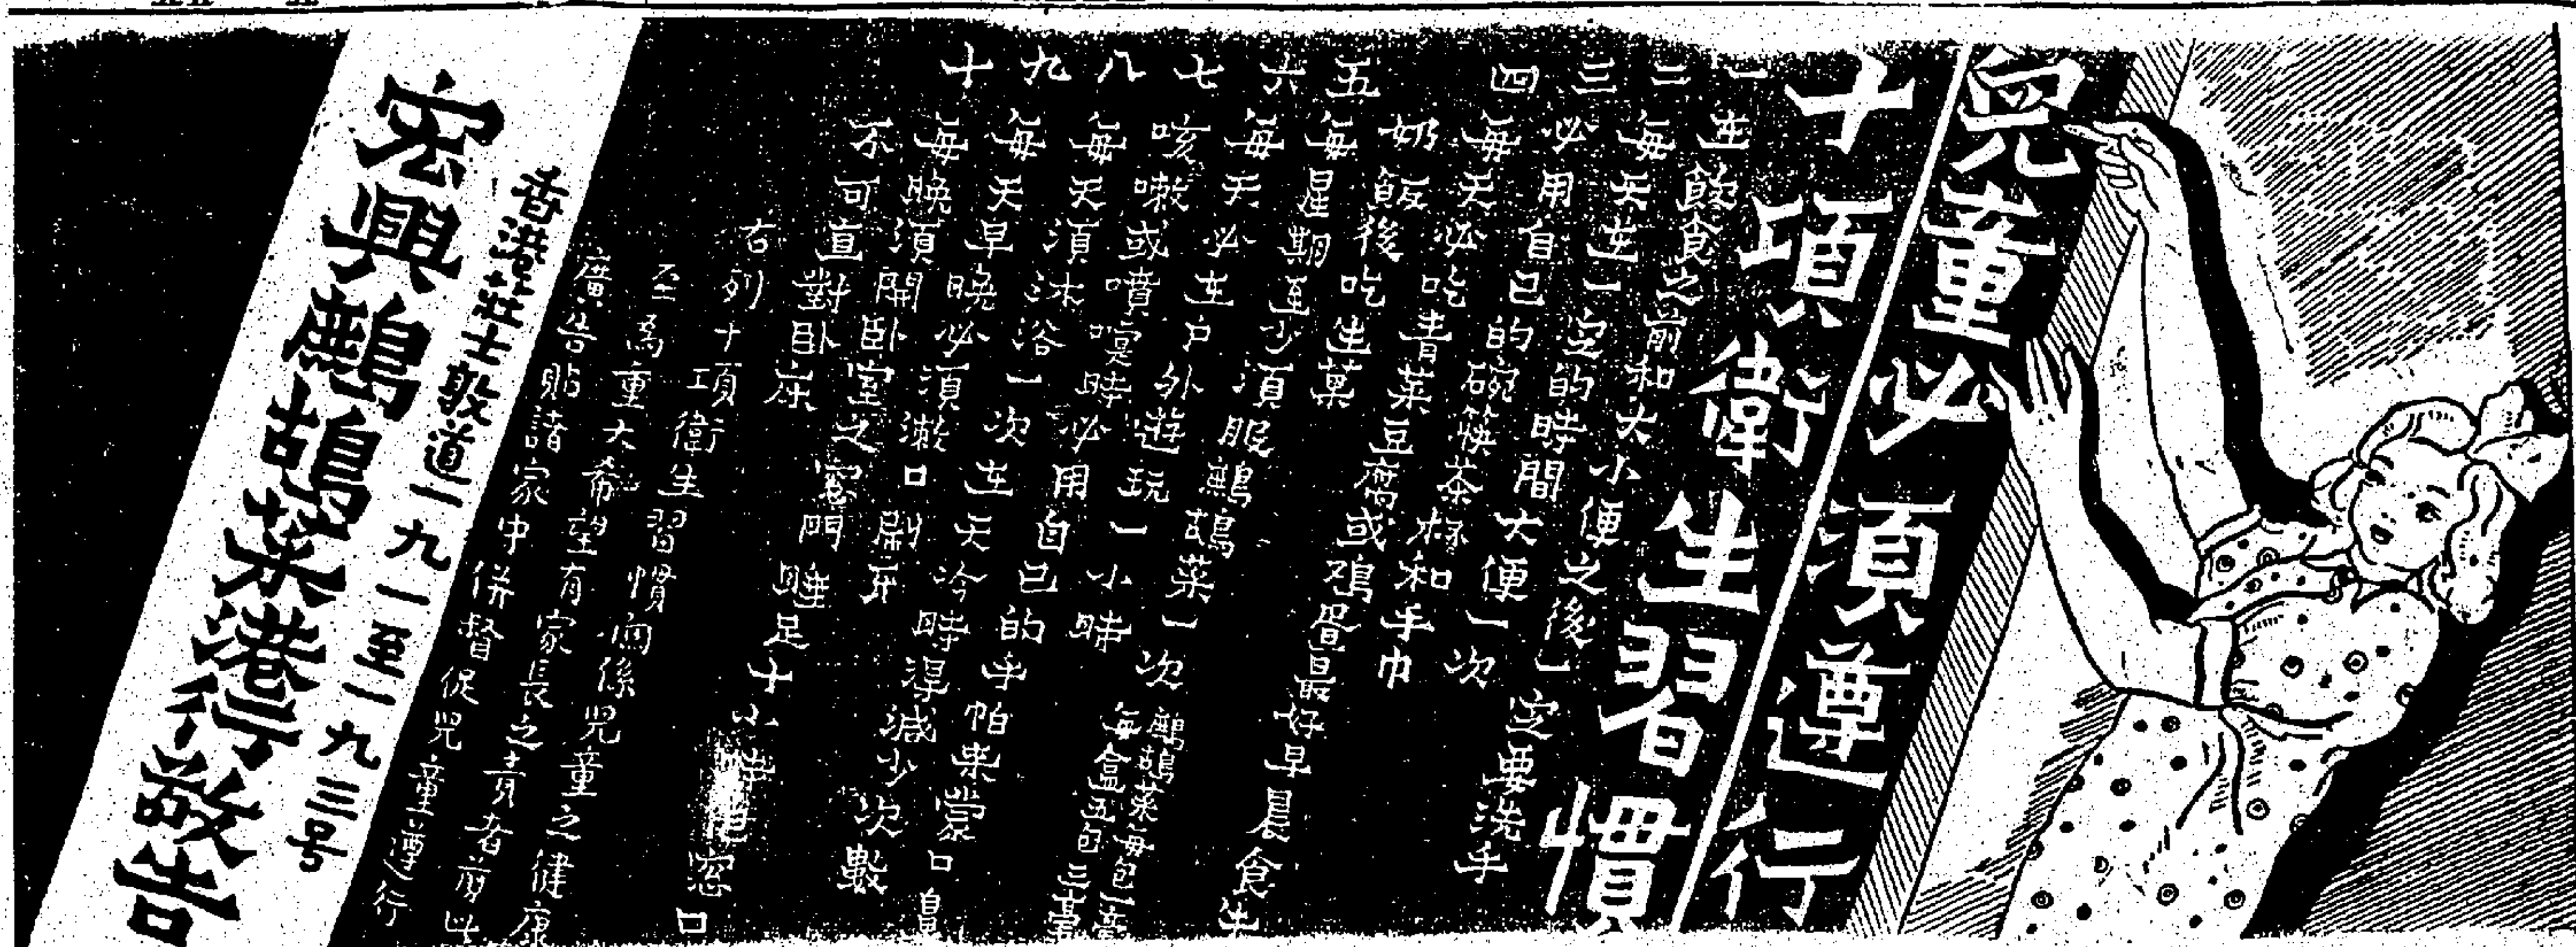 兒童必須遵行
十項衛生習慣
一 在飲食之前和大小便之後一定要洗手
二 每天在一定的時間大便一次
三 必用自己的碗筷茶杯和手巾
四 每天必吃青菜豆腐或鷄蛋最好早晨食生
奶飯後吃生菓
五 每星期至少須服鷓鴣菜一次 鷓鴣菜每包一毫
每盒五包三毫
六 每天必在户外遊玩一小時
七 咳嗽或噴嚏時必用自己的手帕來蒙口鼻
八 每天須沐浴一次在天冷時得減少次數
九 每天早晚必須漱口刷牙
十 每晚須開卧室之窗門睡足十小時 窓口
不可直對卧床
右列十項之衛生習慣關係兒童之健康
至爲重大希望有家長之責者剪此
廣告貼諸家中併督促兒童遵行
香港莊士敦道一九一至一九三号
宏興鷓鴣菜港行敬告